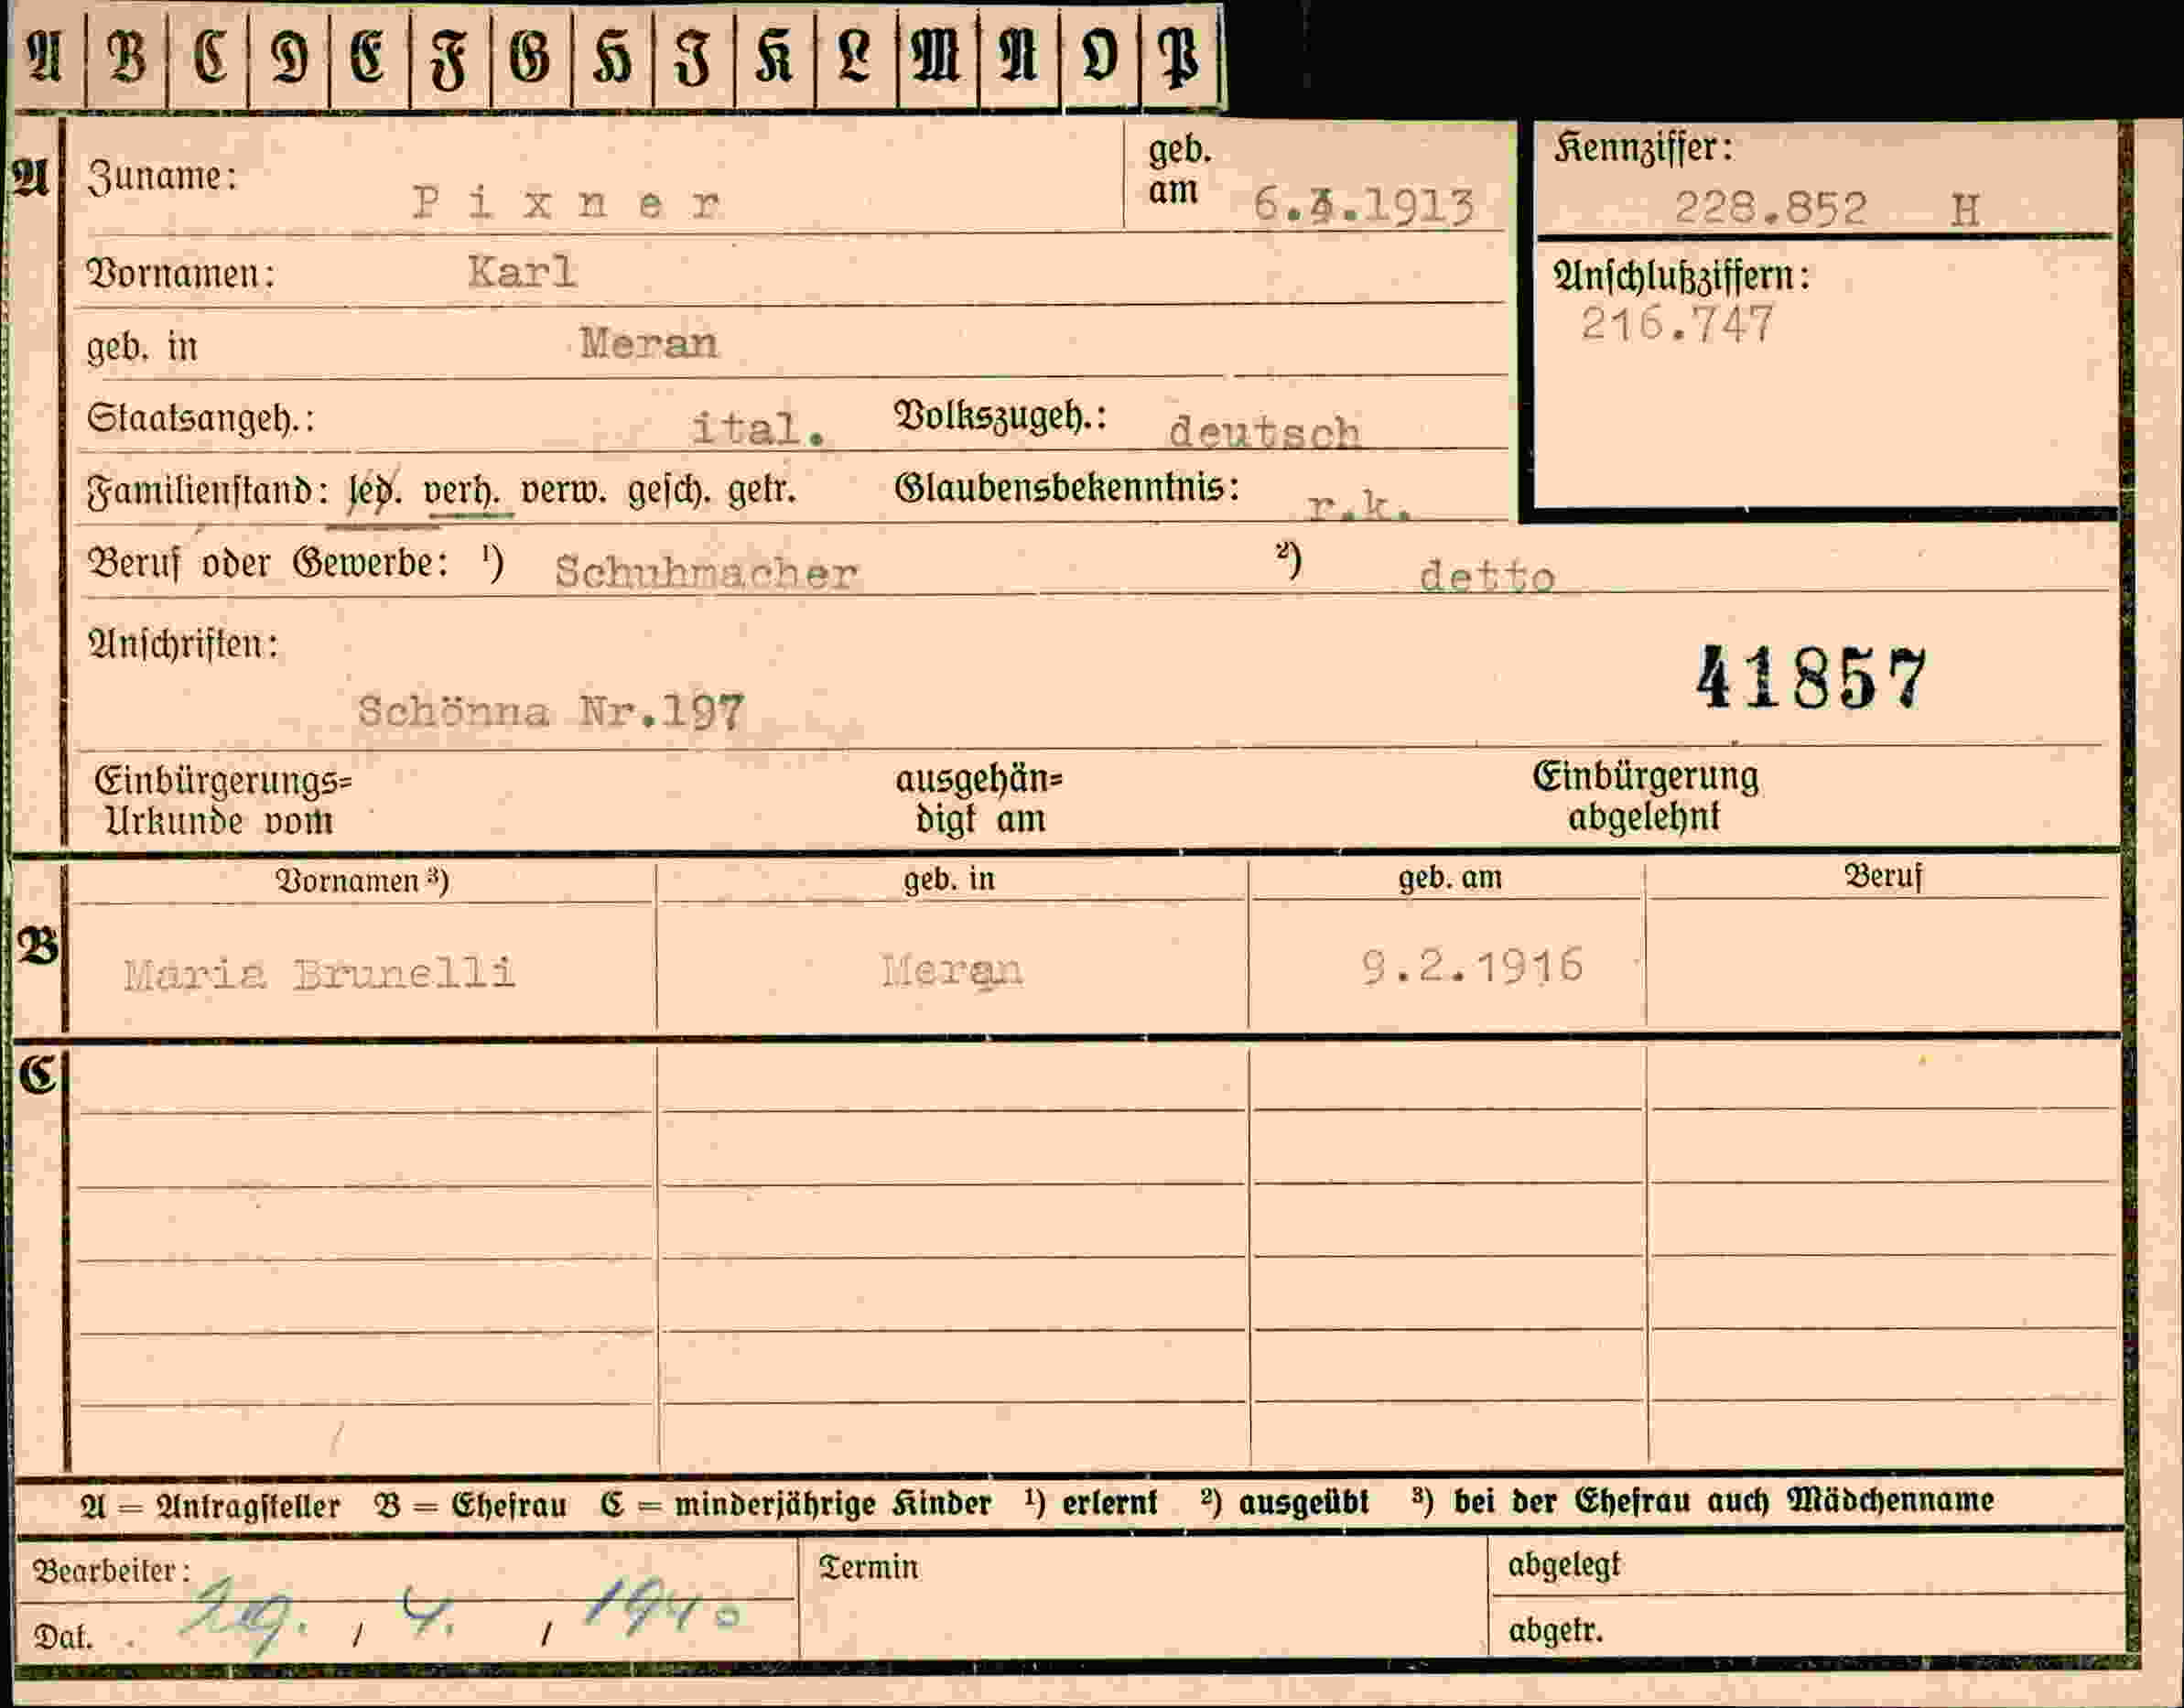 A B C D E F G H I K L M N O P
A Zuname: Pixner geb. am 6. .1913 Kennziffer: 228.852 H
Vornamen: Karl Anschlußziffern: 216.747
geb. in Meran
Staatsangeh.: ital. Volkszugeh.: deutsch
Familienstand: led. verh. verw. gesch. getr. Glaubensbekenntnis: r.k.
Beruf oder Gewerbe: ¹) Schuhmacher ²) detto
Anschriften:
41857
Schönna Nr.197
Einbürgerungs= ausgehän= Einbürgerung
Urkunde vom digt am abgelehnt
Vornamen ³) geb. in geb. am Beruf
B Maria Brunelli Meran 9.2.1916
C
A = Antragsteller B = Ehefrau C = minderjährige Kinder ¹) erlernt ²) ausgeübt ³) bei der Ehefrau auch Mädchenname
Bearbeiter: Termin abgelegt
Dat. 29. / 4. / 1940 abgetr.